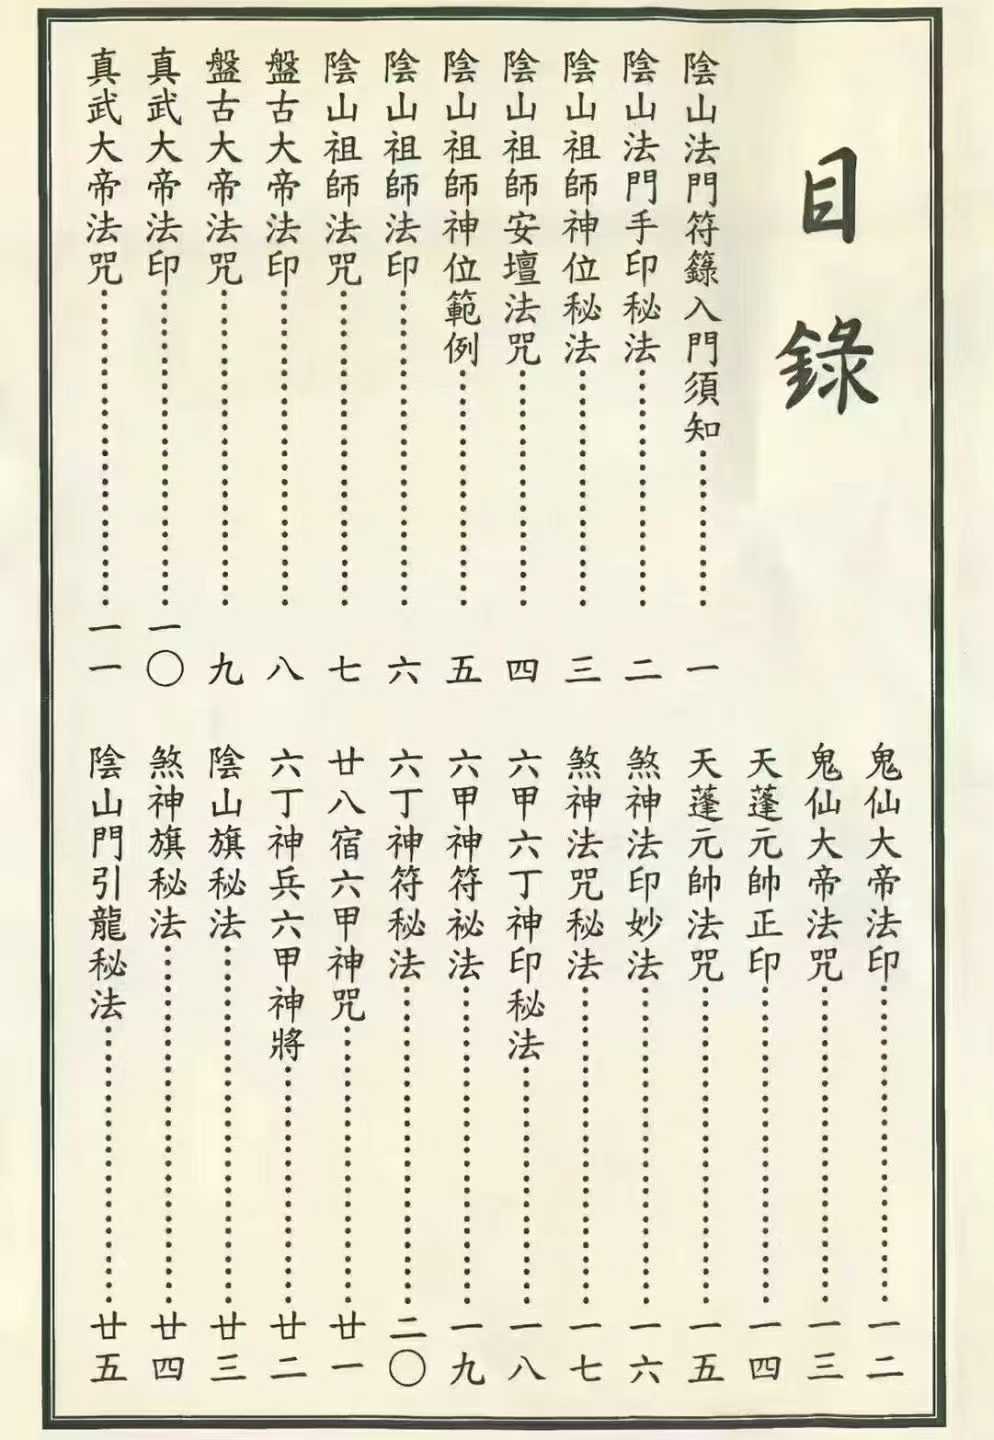 目錄
陰山法門符籙入門須知⋯⋯⋯⋯一
陰山法門手印秘法⋯⋯⋯⋯二
陰山祖師神位秘法⋯⋯⋯⋯三
陰山祖師安壇法咒⋯⋯⋯⋯四
陰山祖師神位範例⋯⋯⋯⋯五
陰山祖師法印⋯⋯⋯⋯六
陰山祖師法咒⋯⋯⋯⋯七
盤古大帝法印⋯⋯⋯⋯八
盤古大帝法咒⋯⋯⋯⋯九
真武大帝法印⋯⋯⋯⋯一〇
真武大帝法咒⋯⋯⋯⋯一一
鬼仙大帝法印⋯⋯⋯⋯一二
鬼仙大帝法咒⋯⋯⋯⋯一三
天蓬元帥正印⋯⋯⋯⋯一四
天蓬元帥法咒⋯⋯⋯⋯一五
煞神法印妙法⋯⋯⋯⋯一六
煞神法咒秘法⋯⋯⋯⋯一七
六甲六丁神印秘法⋯⋯⋯⋯一八
六甲神符祕法⋯⋯⋯⋯一九
六丁神符秘法⋯⋯⋯⋯二〇
廿八宿六甲神咒⋯⋯⋯⋯廿一
六丁神兵六甲神將⋯⋯⋯⋯廿二
陰山旗秘法⋯⋯⋯⋯廿三
煞神旗秘法⋯⋯⋯⋯廿四
陰山門引龍秘法⋯⋯⋯⋯廿五